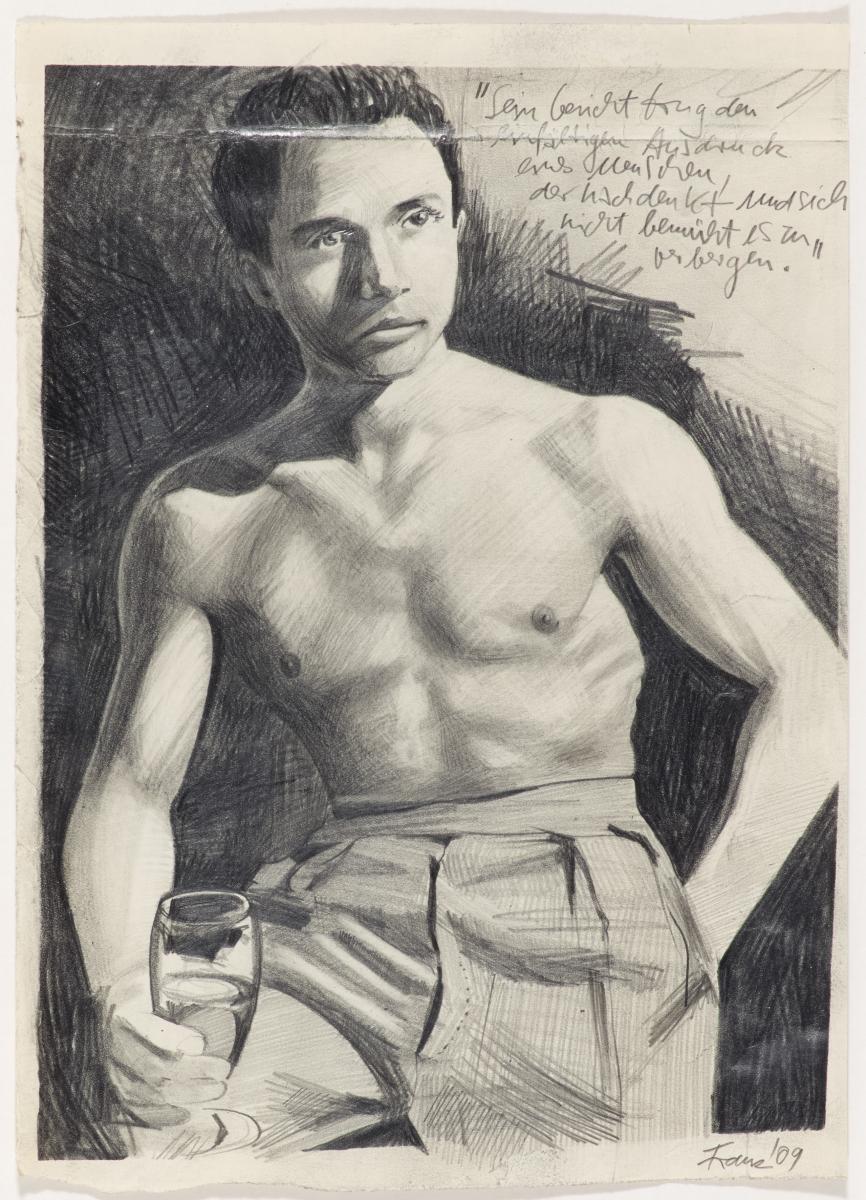 "Sein Gesicht trug den
einfältigen Ausdruck
eines Menschen,
der nachdenkt und sich
nicht bemüht es zu
verbergen."
Franz '09